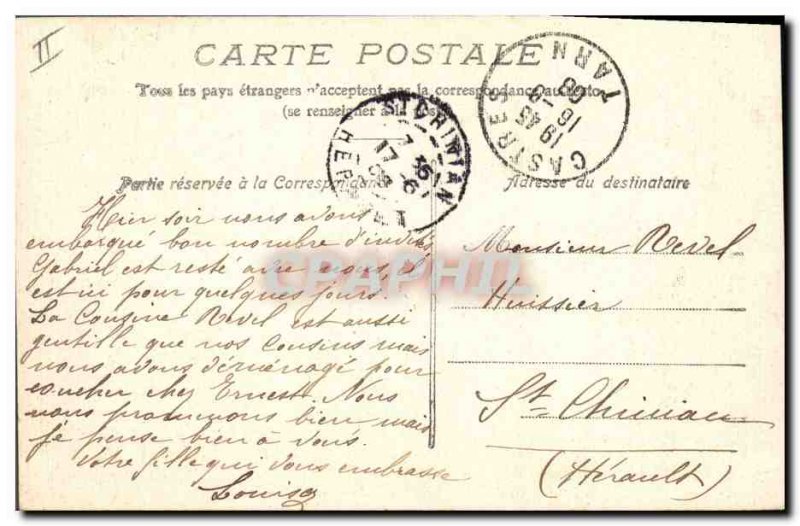 II
CARTE POSTALE
Tous les pays étrangers n'acceptent pas la correspondance au recto
(se renseigner à la Poste)
CASTRES
TARN
19 45
16 - 9
08
ST CHINIAN
HERAULT
17
Partie réservée à la Correspondance
Adresse du destinataire
Hier soir nous avons
embarqué bon nombre d'invités
Gabriel est resté avec nous, il
est ici pour quelques jours.
La Cousine Revel est aussi
gentille que nos Cousins mais
nous avons déménagé pour
coucher chez Ernest. Nous
nous promenons bien mais
je pense bien à vous.
Votre fille qui vous embrasse
Louise
Monsieur Revel
Huissier
St Chinian
(Hérault)
CPAPHIL